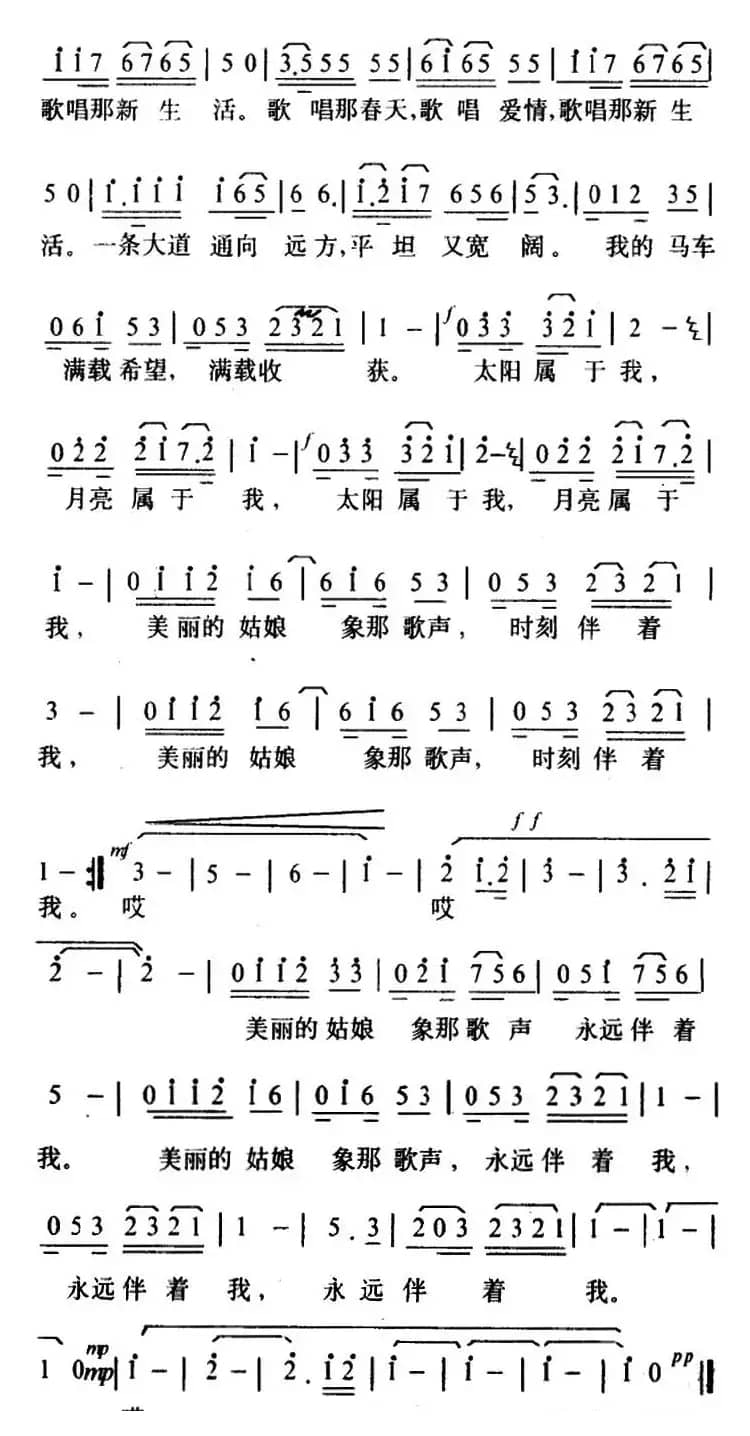 1 1 7 6 7 6 5 | 5 0 | 3. 5 5 5 5 5 | 6 1 6 5 5 5 | 1 1 7 6 7 6 5 |
歌唱那新生活。歌唱那春天,歌唱爱情,歌唱那新生
5 0 | 1. 1 1 1 1 6 5 | 6 6. | 1. 2 1 7 6 5 6 | 5 3. | 0 1 2 3 5 |
活。一条大道通向远方,平坦又宽阔。我的马车
0 6 1 5 3 | 0 5 3 2 3 2 1 | 1 – | f 0 3 3 3 2 1 | 2 – |
满载希望, 满载收获。太阳属于我,
0 2 2 2 1 7. 2 | 1 – | f 0 3 3 3 2 1 | 2 – | 0 2 2 2 1 7. 2 |
月亮属于我, 太阳属于我, 月亮属于
1 – | 0 1 1 2 1 6 | 6 1 6 5 3 | 0 5 3 2 3 2 1 |
我, 美丽的姑娘象那歌声, 时刻伴着
3 – | 0 1 1 2 1 6 | 6 1 6 5 3 | 0 5 3 2 3 2 1 |
我, 美丽的姑娘象那歌声, 时刻伴着
1 – :| mf 3 – | 5 – | 6 – | 1 – | 2 1. 2 | ff 3 – | 3. 2 1 |
我。哎 哎
2 – | 2 – | 0 1 1 2 3 3 | 0 2 1 7 5 6 | 0 5 1 7 5 6 |
美丽的姑娘象那歌声永远伴着
5 – | 0 1 1 2 1 6 | 0 1 6 5 3 | 0 5 3 2 3 2 1 | 1 – |
我。美丽的姑娘象那歌声, 永远伴着我,
0 5 3 2 3 2 1 | 1 – | 5. 3 | 2 0 3 2 3 2 1 | 1 – | 1 – |
永远伴着我, 永远伴着我。
1 0 mp mp | 1 – | 2 – | 2. 1 2 | 1 – | 1 – | 1 – | 1 0 pp |